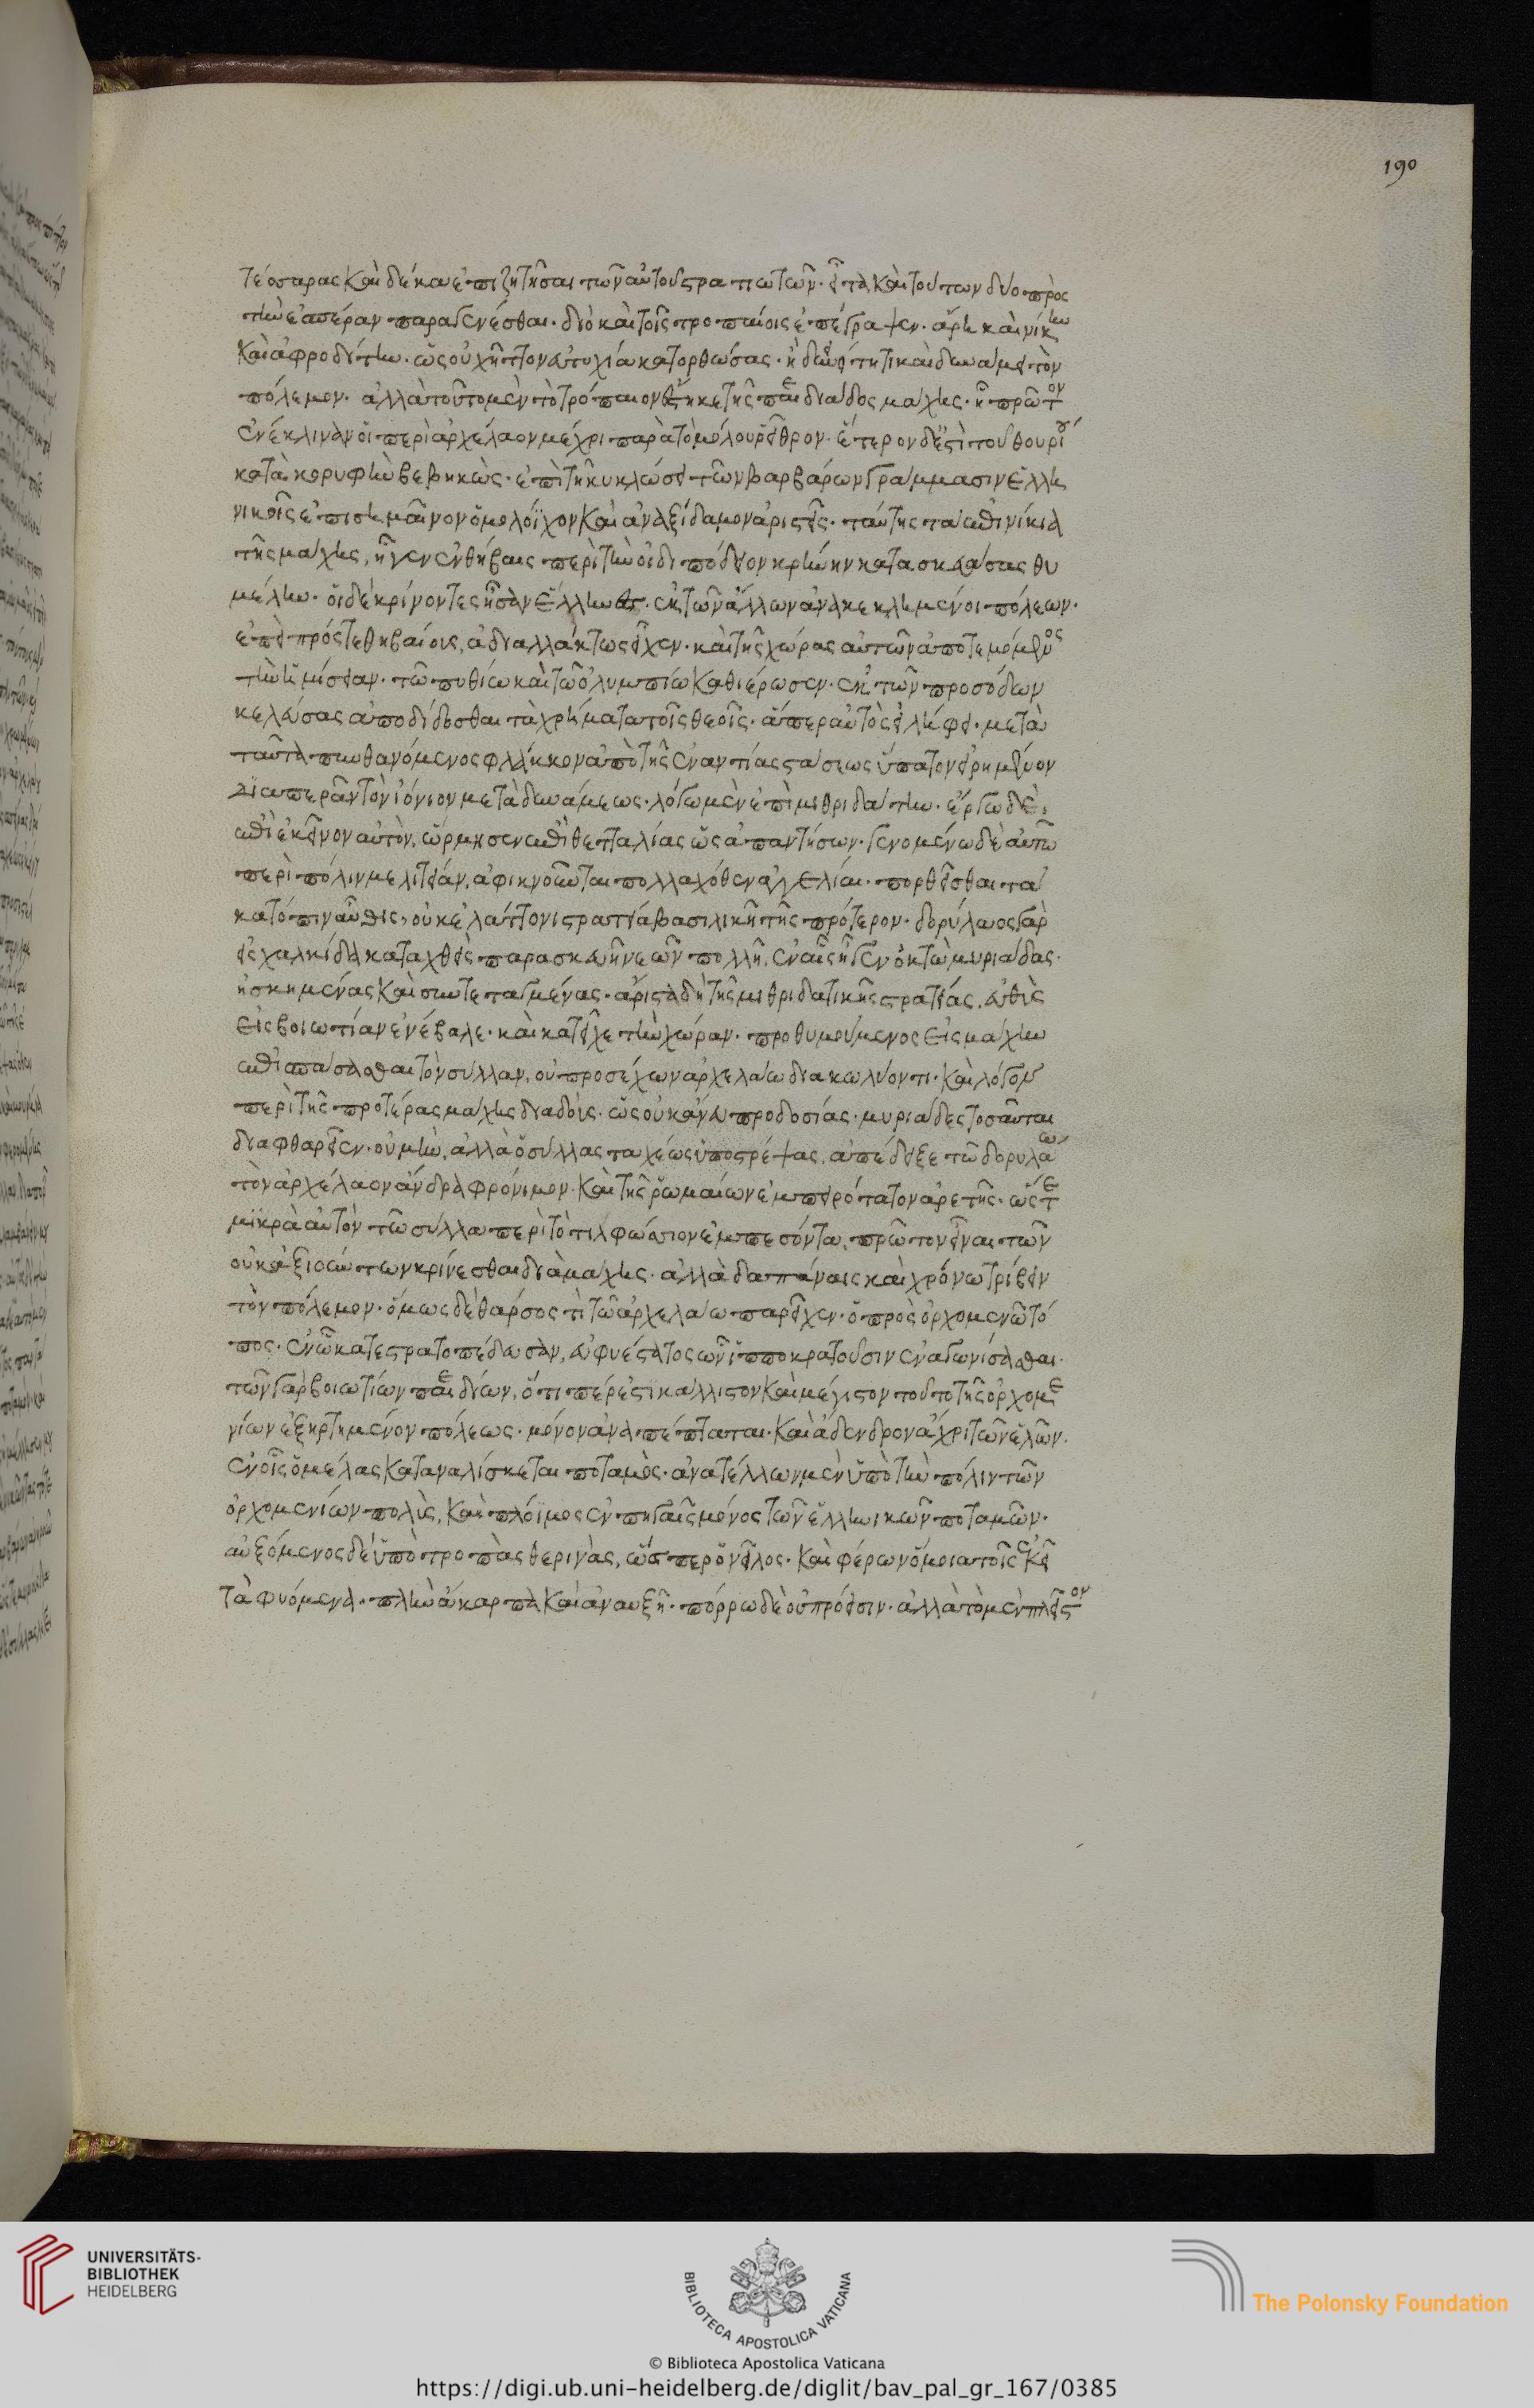 190
τέσσαρας καὶ δέκα ἐπιζητῆσαι τῶν αὑτοῦ στρατιωτῶν· εἶτα καὶ τούτων δύο πρὸς
τὴν ἑσπέραν παραγενέσθαι· διὸ καὶ τοῖς τροπαίοις ἐπέγραψεν· ἄρη καὶ νίκην
καὶ ἀφροδίτην· ὡς οὐχ ἧττον εὐτυχία κατορθώσας· ἢ δεινότητι καὶ δυνάμει τὸν
πόλεμον· ἀλλὰ τοῦτο μὲν τὸ τρόπαιον ἕστηκε τῆς πεδιάδος μάχης· ἧ πρῶτον
ἐνέκλιναν οἱ περὶ ἀρχέλαον μέχρι παρὰ τὸ μόλου ῥεῖθρον· ἕτερον δέ ἐστι τοῦ θουρίου
κατὰ κορυφὴν βεβηκὼς· ἐπὶ τῆ κυκλώσει τῶν βαρβάρων γράμμασιν ἑλλη
νικοῖς ἐπισημαῖνον ὁμολόϊχον καὶ ἀναξίδαμον ἀριστεῖς· ταύτης τὰ ἐπινίκια
τῆς μάχης, ἦγεν ἐν θήβαις περὶ τὴν οἰδιπόδειον κρήνην κατασκευάσας θυ
μέλην· οἱ δὲ κρίνοντες ἦσαν ἕλληνες· ἐκ τῶν ἄλλων ἀνακεκλημένοι πόλεων·
ἐπεὶ πρός τε θηβαίους, ἀδιαλλάκτως εἶχεν· καὶ τῆς χώρας αὐτῶν ἀποτεμόμενος
τὴν ἡμίσειαν· τῶ πυθίω καὶ τῶ ὀλυμπίω καθιέρωσεν· ἐκ τῶν προσόδων
κελεύσας ἀποδίδοσθαι τὰ χρήματα τοῖς θεοῖς· ἅπερ αὐτὸς εἰλήφει· μετὰ
ταῦτα πυνθανόμενος φλάκκον ἀπὸ τῆς ἐναντίας στάσεως ὕπατον εἰρημένον
διαπερᾶν τὸν ἰόνιον μετὰ δυνάμεως· λόγω μὲν ἐπὶ μιθριδάτην· ἔργω δὲ,
ἐπὶ ἐκεῖνον αὐτὸν, ὥρμησεν ἐπὶ θετταλίας ὡς ἀπαντήσων· γενομένω δὲ αὐτῶ
περὶ πόλιν μελιτείαν, ἀφικνοῦνται πολλαχόθεν ἀγγελίαι· πορθεῖσθαι τὰ
κατόπιν αὖθις, οὐκ ἐλάττονι στρατιᾶ βασιλικῆ τῆς πρότερον· δορύλαος γὰρ
εἰς χαλκίδα καταχθεὶς παρασκευῆ νεῶν πολλῆ, ἐν αἷς ἦγεν ὀκτὼ μυριάδας·
ἠσκημένας καὶ συντεταγμένας· ἄριστα δὴ τῆς μιθριδατικῆς στρατείας, εὐθὺς
εἰς βοιωτίαν ἐνέβαλε· καὶ κατεῖχε τὴν χώραν· προθυμούμενος εἰς μάχην
ἐπισπάσασθαι τὸν σύλλαν, οὐ προσέχων ἀρχελάω διακωλύοντι· καὶ λόγον
περὶ τῆς προτέρας μάχης διαδοὺς· ὡς οὐκ ἄνευ προδοσίας· μυριάδες τοσαῦται
διαφθαρεῖεν· οὐ μὴν, ἀλλὰ ὁ σύλλας ταχέως ὑποστρέψας, ἀπέδειξε τῶ δορυλάω
τὸν ἀρχέλαον ἄνδρα φρόνιμον· καὶ τῆς ῥωμαίων ἐμπειρότατον ἀρετῆς· ὥστε
μικρὰ αὐτὸν τῶ σύλλα περὶ τὸ τιλφώσσιον ἐμπεσόντα, πρῶτον εἶναι τῶν
οὐκ ἀξιούντων κρίνεσθαι διὰ μάχης· ἀλλὰ δαπάναις καὶ χρόνω τρίβειν
τὸν πόλεμον· ὅμως δὲ θάρσος τι τῶ ἀρχελάω παρεῖχεν· ὁ πρὸς ὀρχομενῶ τό
πος· ἐν ὧ κατεστρατοπέδευσαν, εὐφυέστατος ὢν ἱπποκρατοῦσιν ἐναγωνίσασθαι·
τῶν γὰρ βοιωτίων πεδίων, ὅτι πέρ ἐστι κάλλιστον καὶ μέγιστον τοῦτο τῆς ὀρχομε
νίων ἐξηρτημένον πόλεως· μόνον ἀναπέπταται· καὶ ἄδενδρον ἄχρι τῶν ἑλῶν·
ἐν οἷς ὁ μέλας καταναλίσκεται ποταμὸς· ἀνατέλλων μὲν ὑπὸ τὴν πόλιν τῶν
ὀρχομενίων πολὺς, καὶ πλόϊμος ἐν πηγαῖς μόνος τῶν ἑλληνικῶν ποταμῶν·
αὐξόμενος δὲ ὑπὸ τροπὰς θερινὰς, ὥσπερ ὁ νεῖλος· καὶ φέρων ὅμοια τοῖς ἐκεῖ
τὰ φυόμενα· πλὴν ἄκαρπα καὶ ἀναυξῆ· πόρρω δὲ οὐ πρόεισιν· ἀλλὰ τὸ μὲν πλεῖστον
UNIVERSITÄTS-
BIBLIOTHEK
HEIDELBERG
BIBLIOTECA APOSTOLICA VATICANA
The Polonsky Foundation
© Biblioteca Apostolica Vaticana
https://digi.ub.uni-heidelberg.de/diglit/bav_pal_gr_167/0385